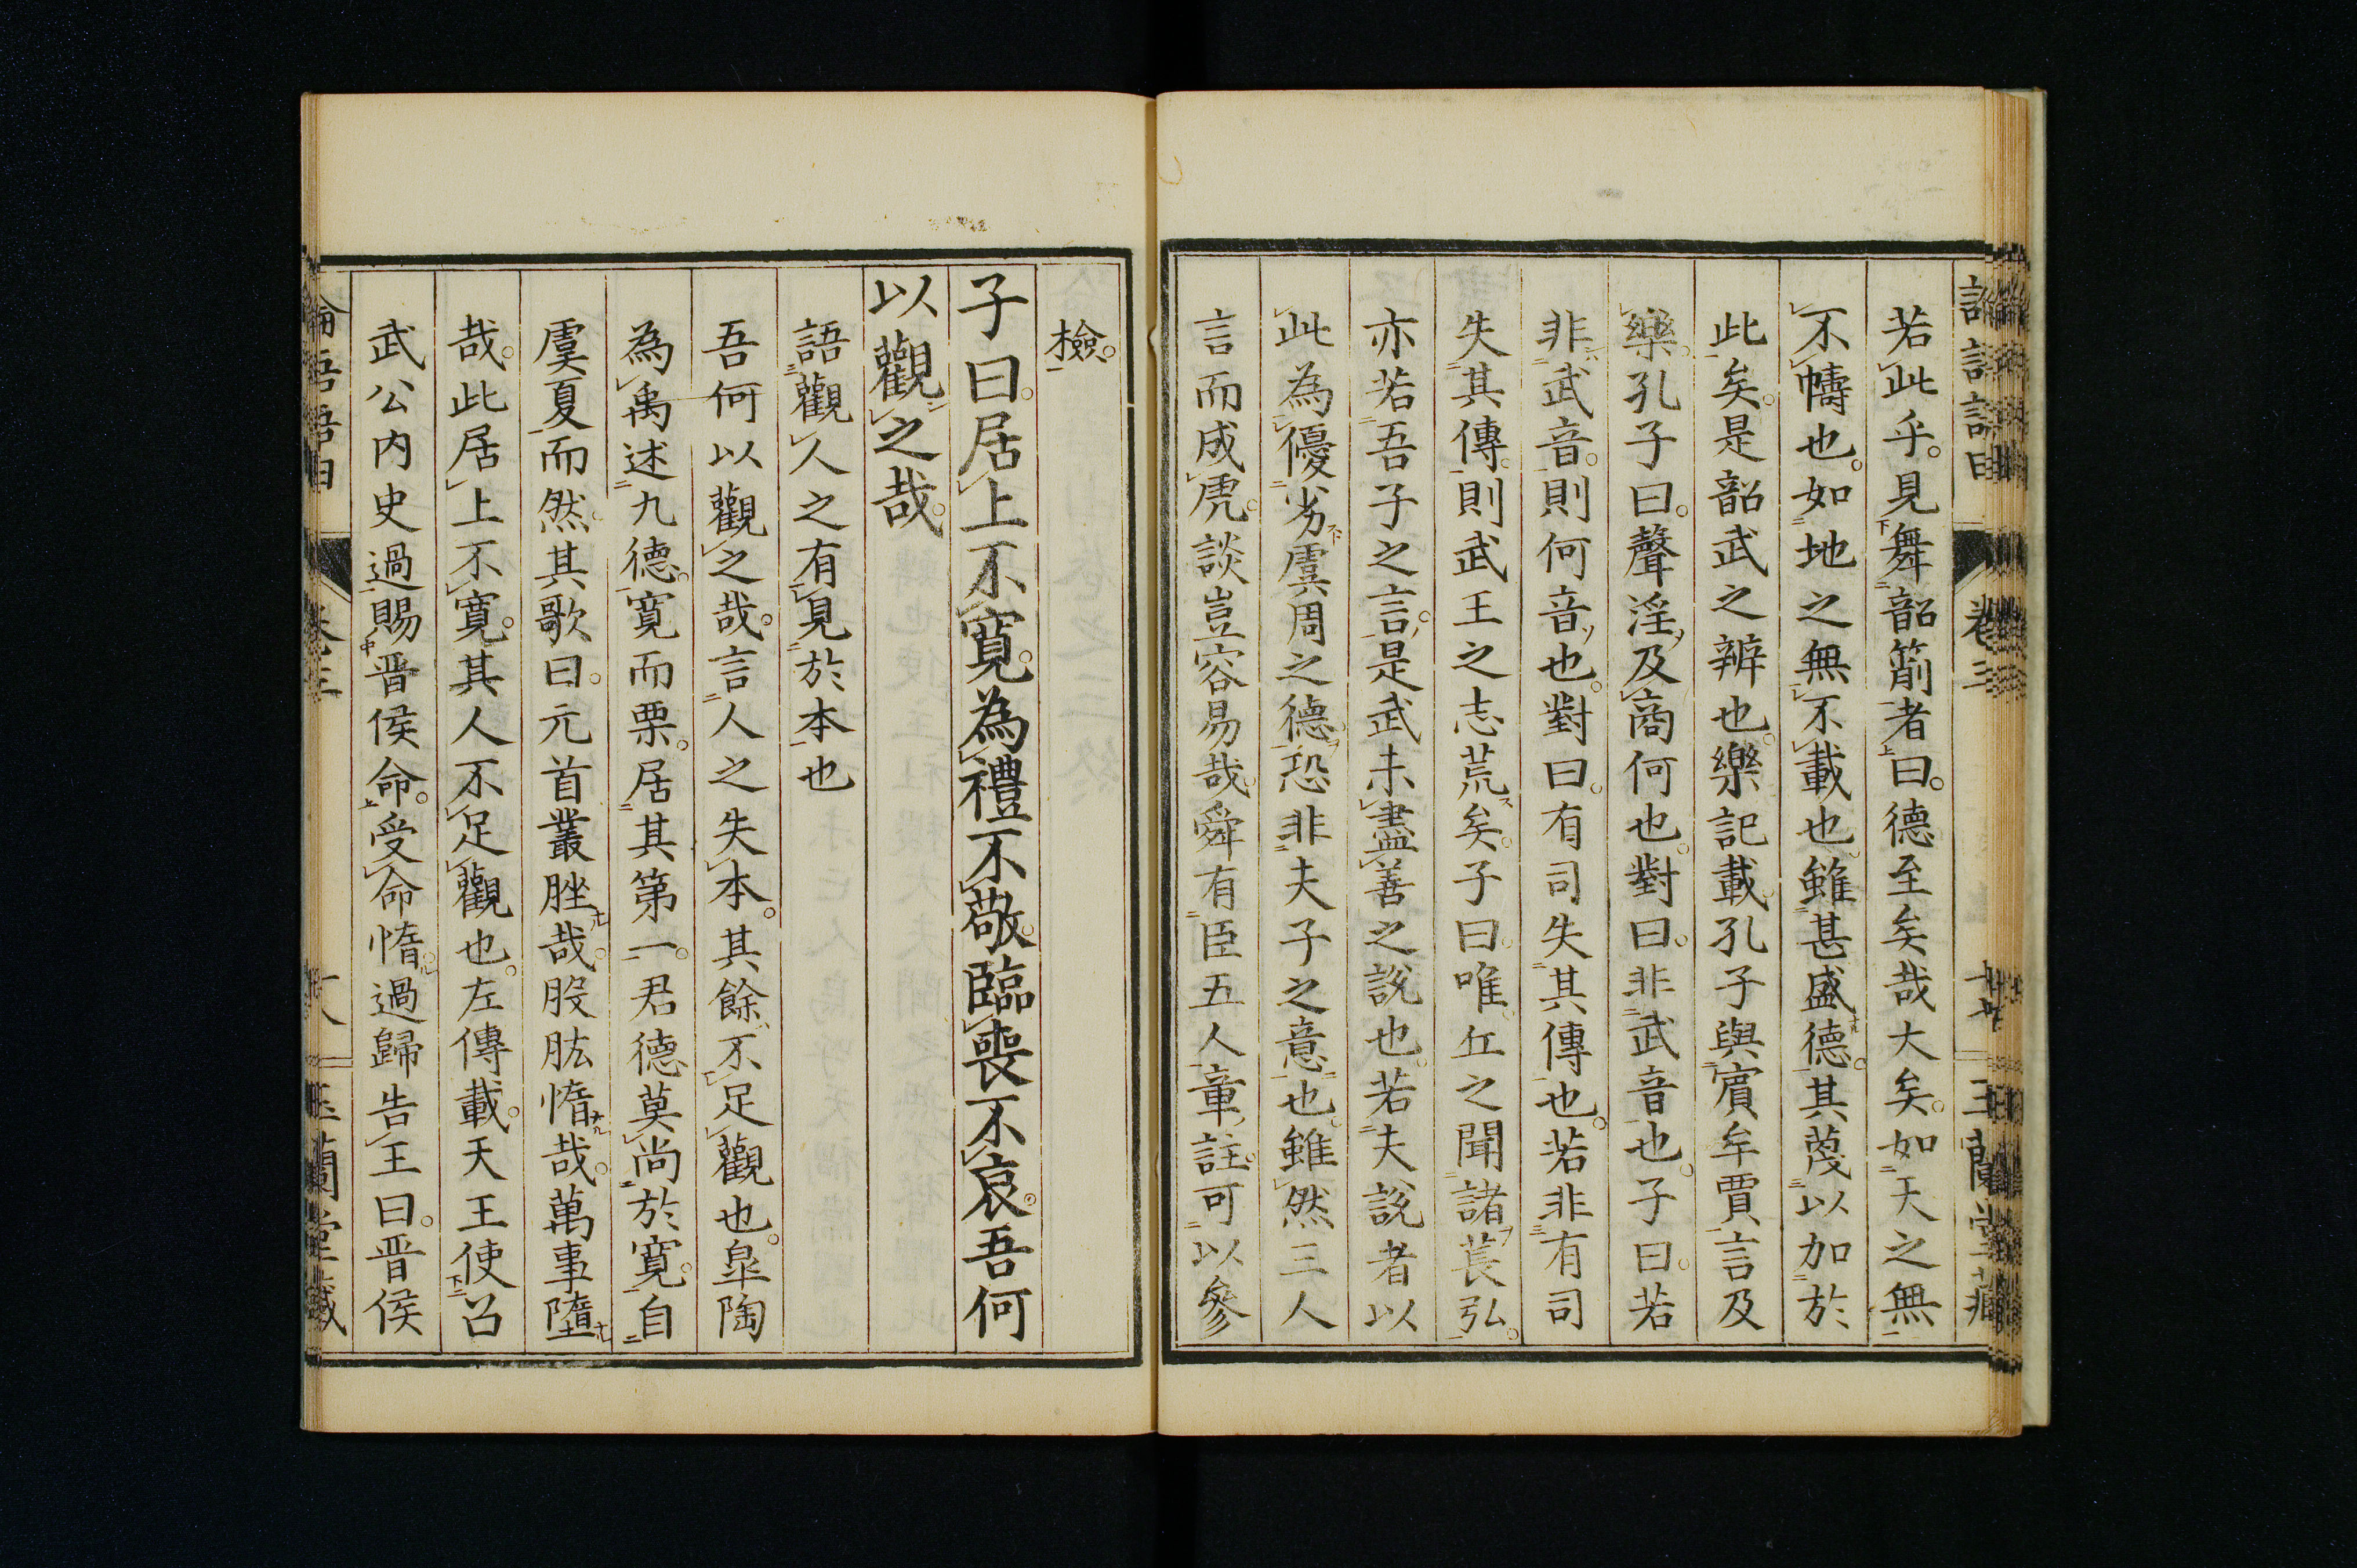 若此乎。見舞韶箾者曰。德至矣哉大矣。如天之無
不幬也。如地之無不載也。雖甚盛德。其蔑以加於
此矣。是韶武之辨也。樂記載孔子與賓牟賈言及
樂。孔子曰。聲淫及商何也。對曰。非武音也。子曰。若
非武音。則何音也。對曰。有司失其傳也。若非有司
失其傳。則武王之志荒矣。子曰。唯丘之聞諸萇弘。
亦若吾子之言。是武未盡善之說也。若夫說者以
此為優劣虞周之德。恐非夫子之意也。雖然三人
言而成虎。談豈容易哉。舜有臣五人章註。可以參
檢。
子曰。居上不寬。為禮不敬。臨喪不哀。吾何
以觀之哉。
語觀人之有見於本也
吾何以觀之哉。言人之失本。其餘不足觀也。皐陶
為禹述九德。寬而栗。居其第一。君德莫尚於寬。自
虞夏而然。其歌曰。元首叢脞哉。股肱惰哉。萬事墮
哉。此居上不寬。其人不足觀也。左傳載。天王使召
武公内史過賜晋侯命。受命惰。過歸告王曰。晋侯